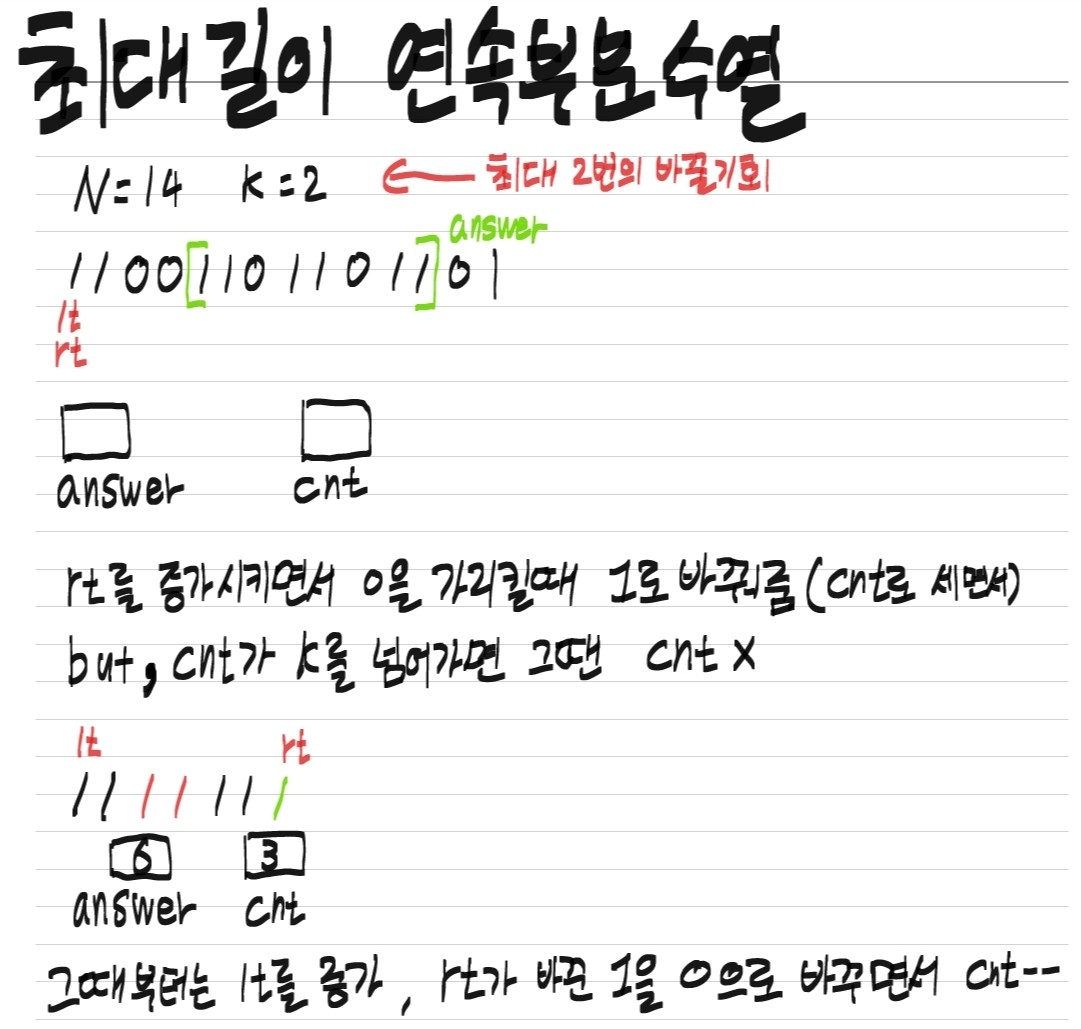 최대 길이 연속부분수열
N=14 K=2 ← 최대 2번의 바꿀기회
answer
1100[11011011]01
lt
rt
answer cnt
rt를 증가시키면서 0을 가리킬때 1로 바꿔줌 (cnt로 세면서)
but, cnt가 k를 넘어가면 그땐 cnt X
lt rt
1111111
6 3
answer cnt
그때부터는 lt를 증가, rt가 바꾼 1을 0으로 바꾸면서 cnt--